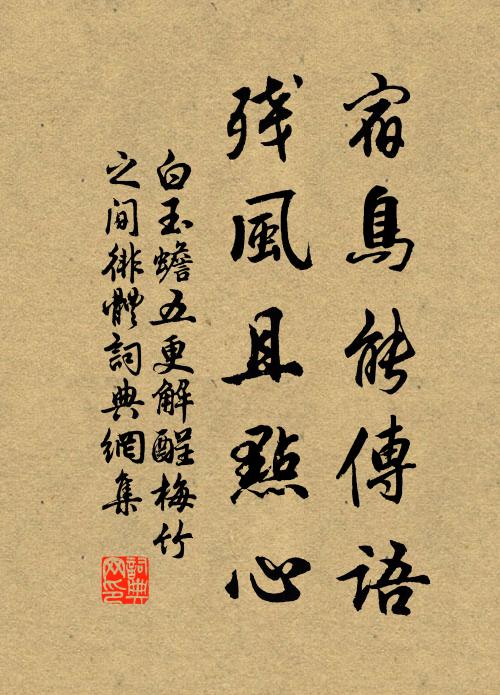 宿鳥能傳語
残風且點心
白玉蟾五更解醒梅竹
之間徘體詞典網集
詞典
网印